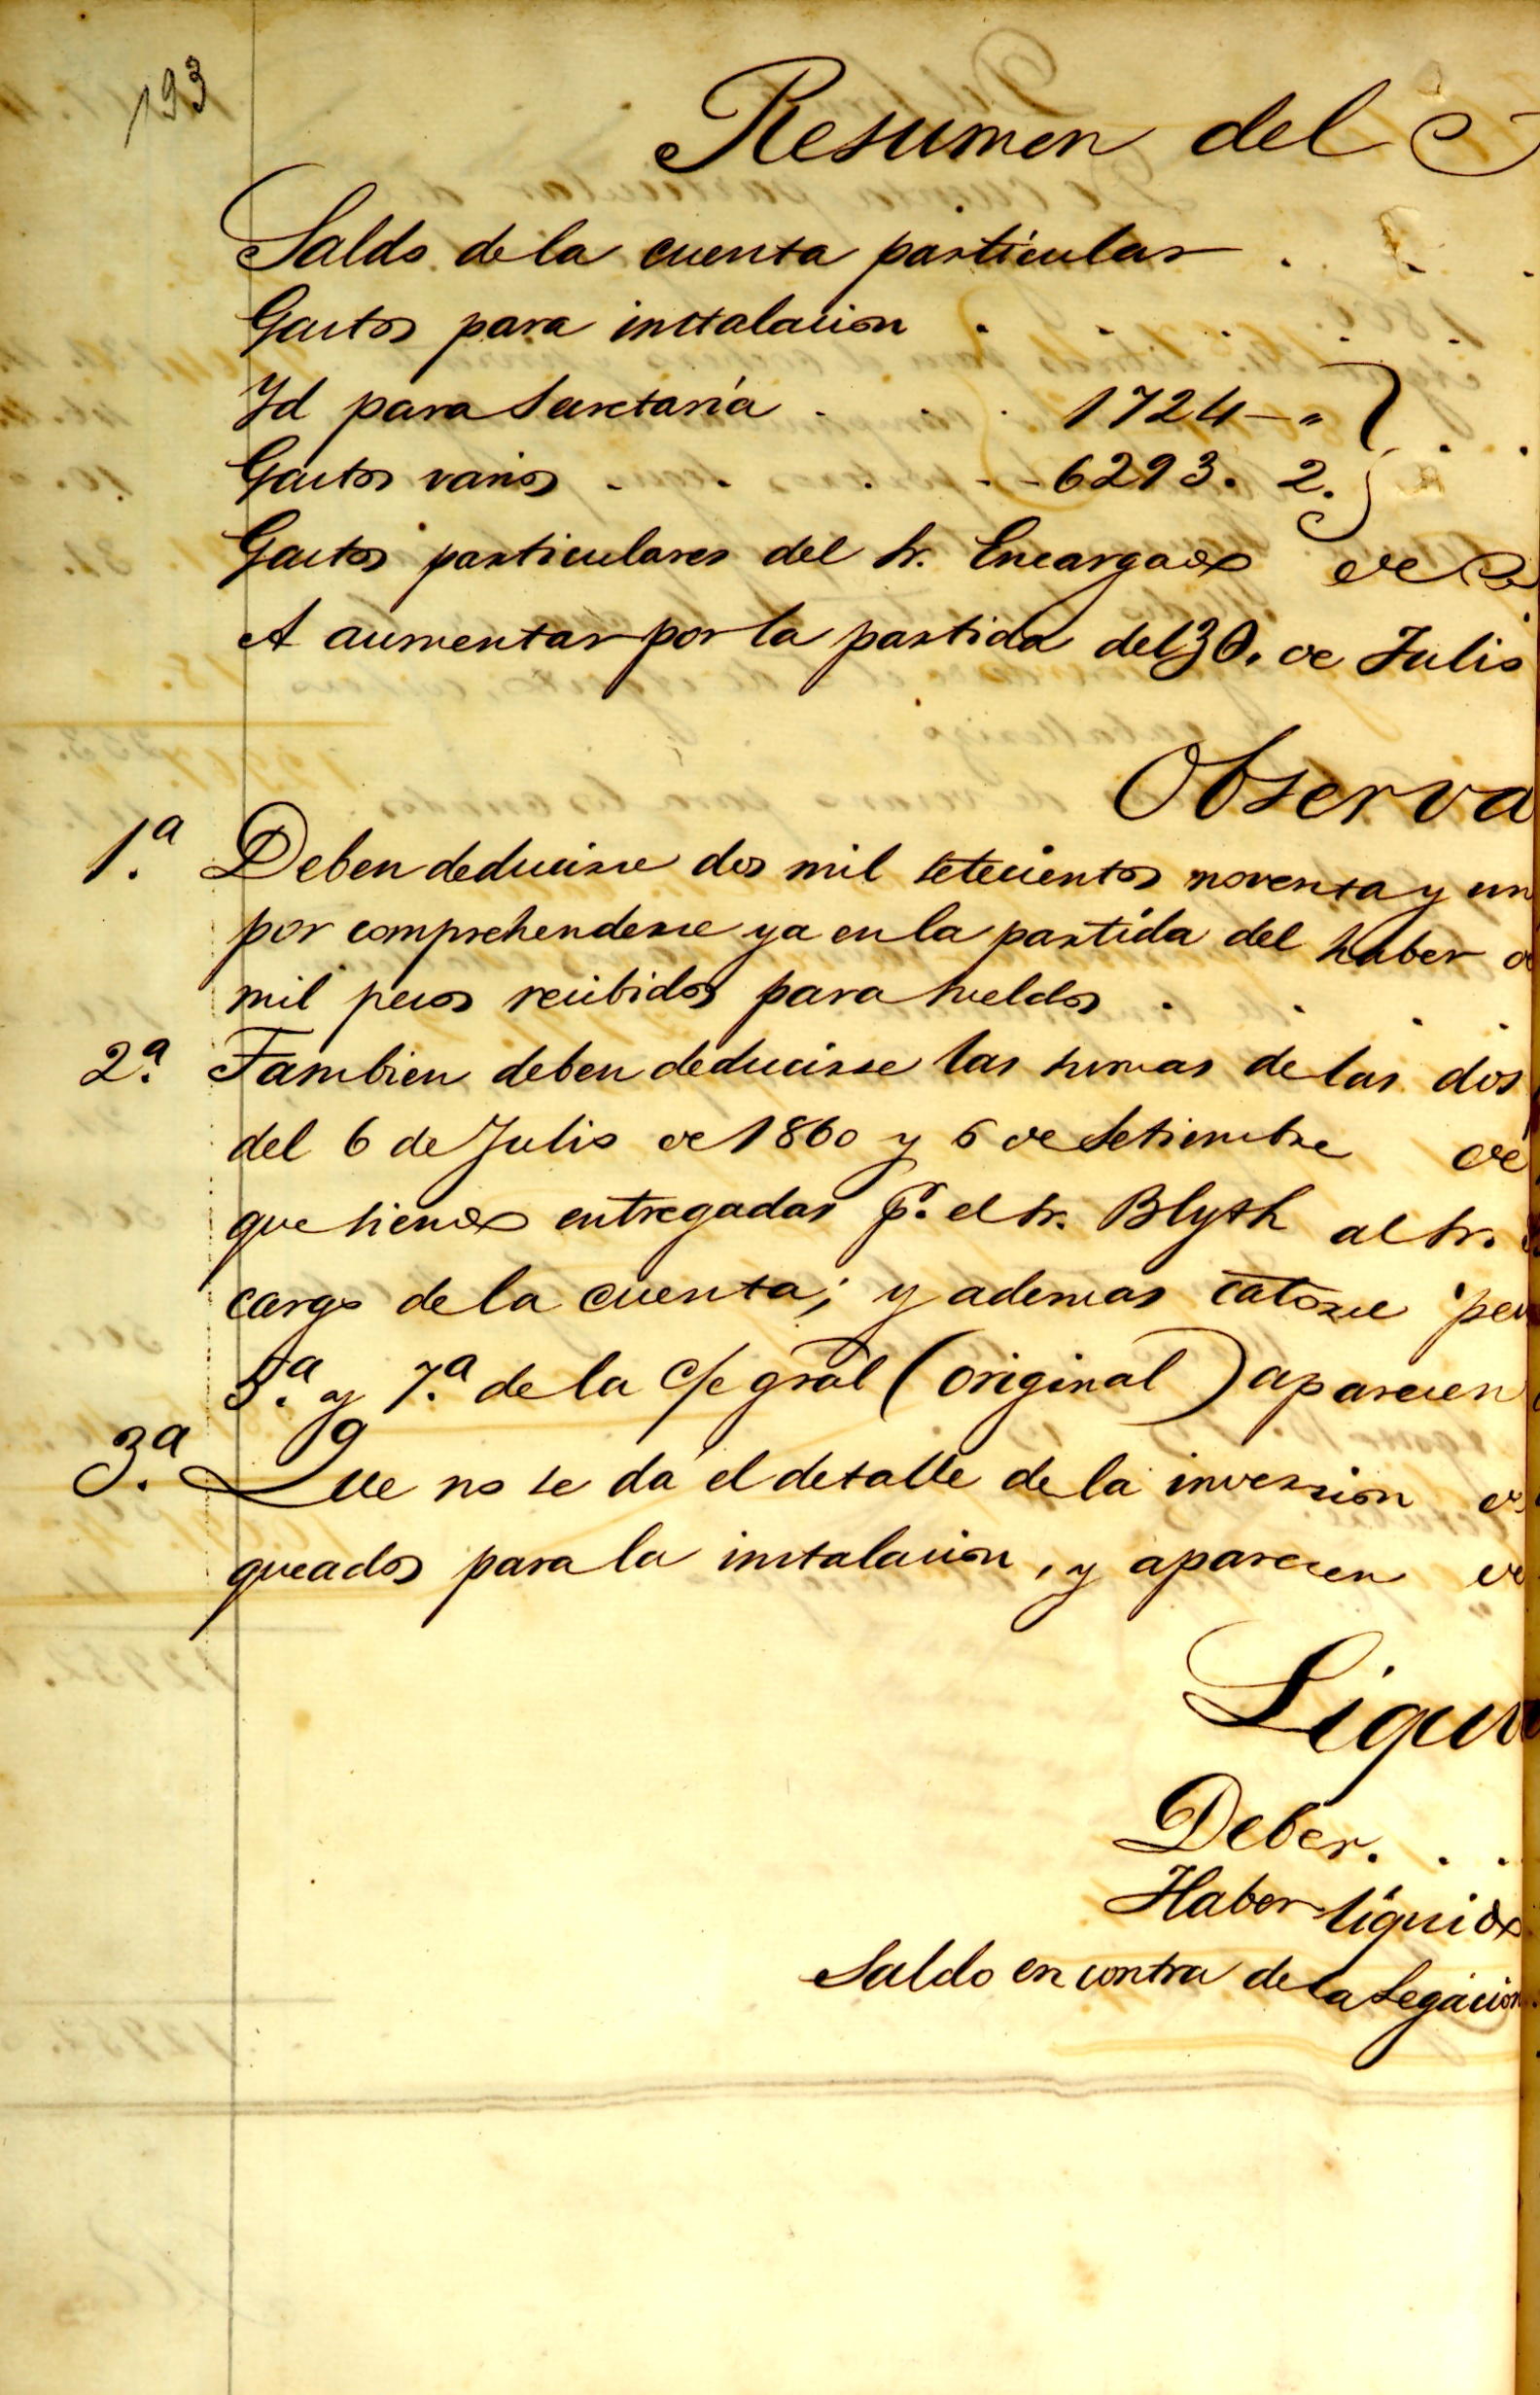 193
Resumen del
Saldo de la cuenta particular . . .
Gastos para instalacion . . . . .
Id para Secretaría . . . 1724 - " } . .
Gastos varios . . . . - 6293. 2. }
Gastos particulares del Sr. Encargado de
A aumentar por la partida del 30. de Julio
Observa
1.ª Deben deducirse dos mil setecientos noventa y un
por comprehenderse ya en la partida del haber
mil pesos recibidos para sueldos . . . .
2.ª Tambien deben deducirse las sumas de las dos
del 6 de Julio de 1860 y 6 de Setiembre de
que siendo entregadas p.r el Sr. Blyth al Sr.
cargo de la cuenta; y ademas catorce pes
5.ª y 7.ª de la c/c gral (original) aparecen
3.ª Que no se dá el detalle de la inversion
queados para la instalacion, y aparecen
Liqui
Deber. . .
Haber líquido
Saldo en contra de la Legacion